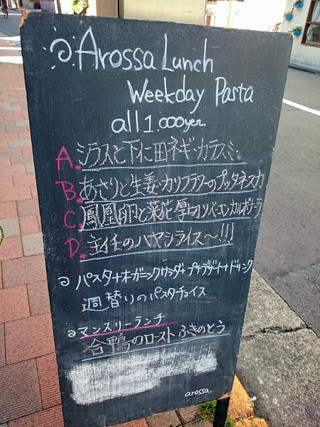 Arossa Lunch
Weekday Pasta
all 1.000yen.
A. シラスと下仁田ネギ・カラスミ
B. あさりと生姜・カリフラワーのプッタネスカ
C. 鳳凰卵と菜花・厚切りパンチェッタのカルボナーラ
D. のハヤシライス〜!!!
パスタ+オーガニックサラダ+プチデザート+ドリンク
週替りのパスタチョイス
マンスリーランチ
合鴨のロースト ふきのとう
arossa.